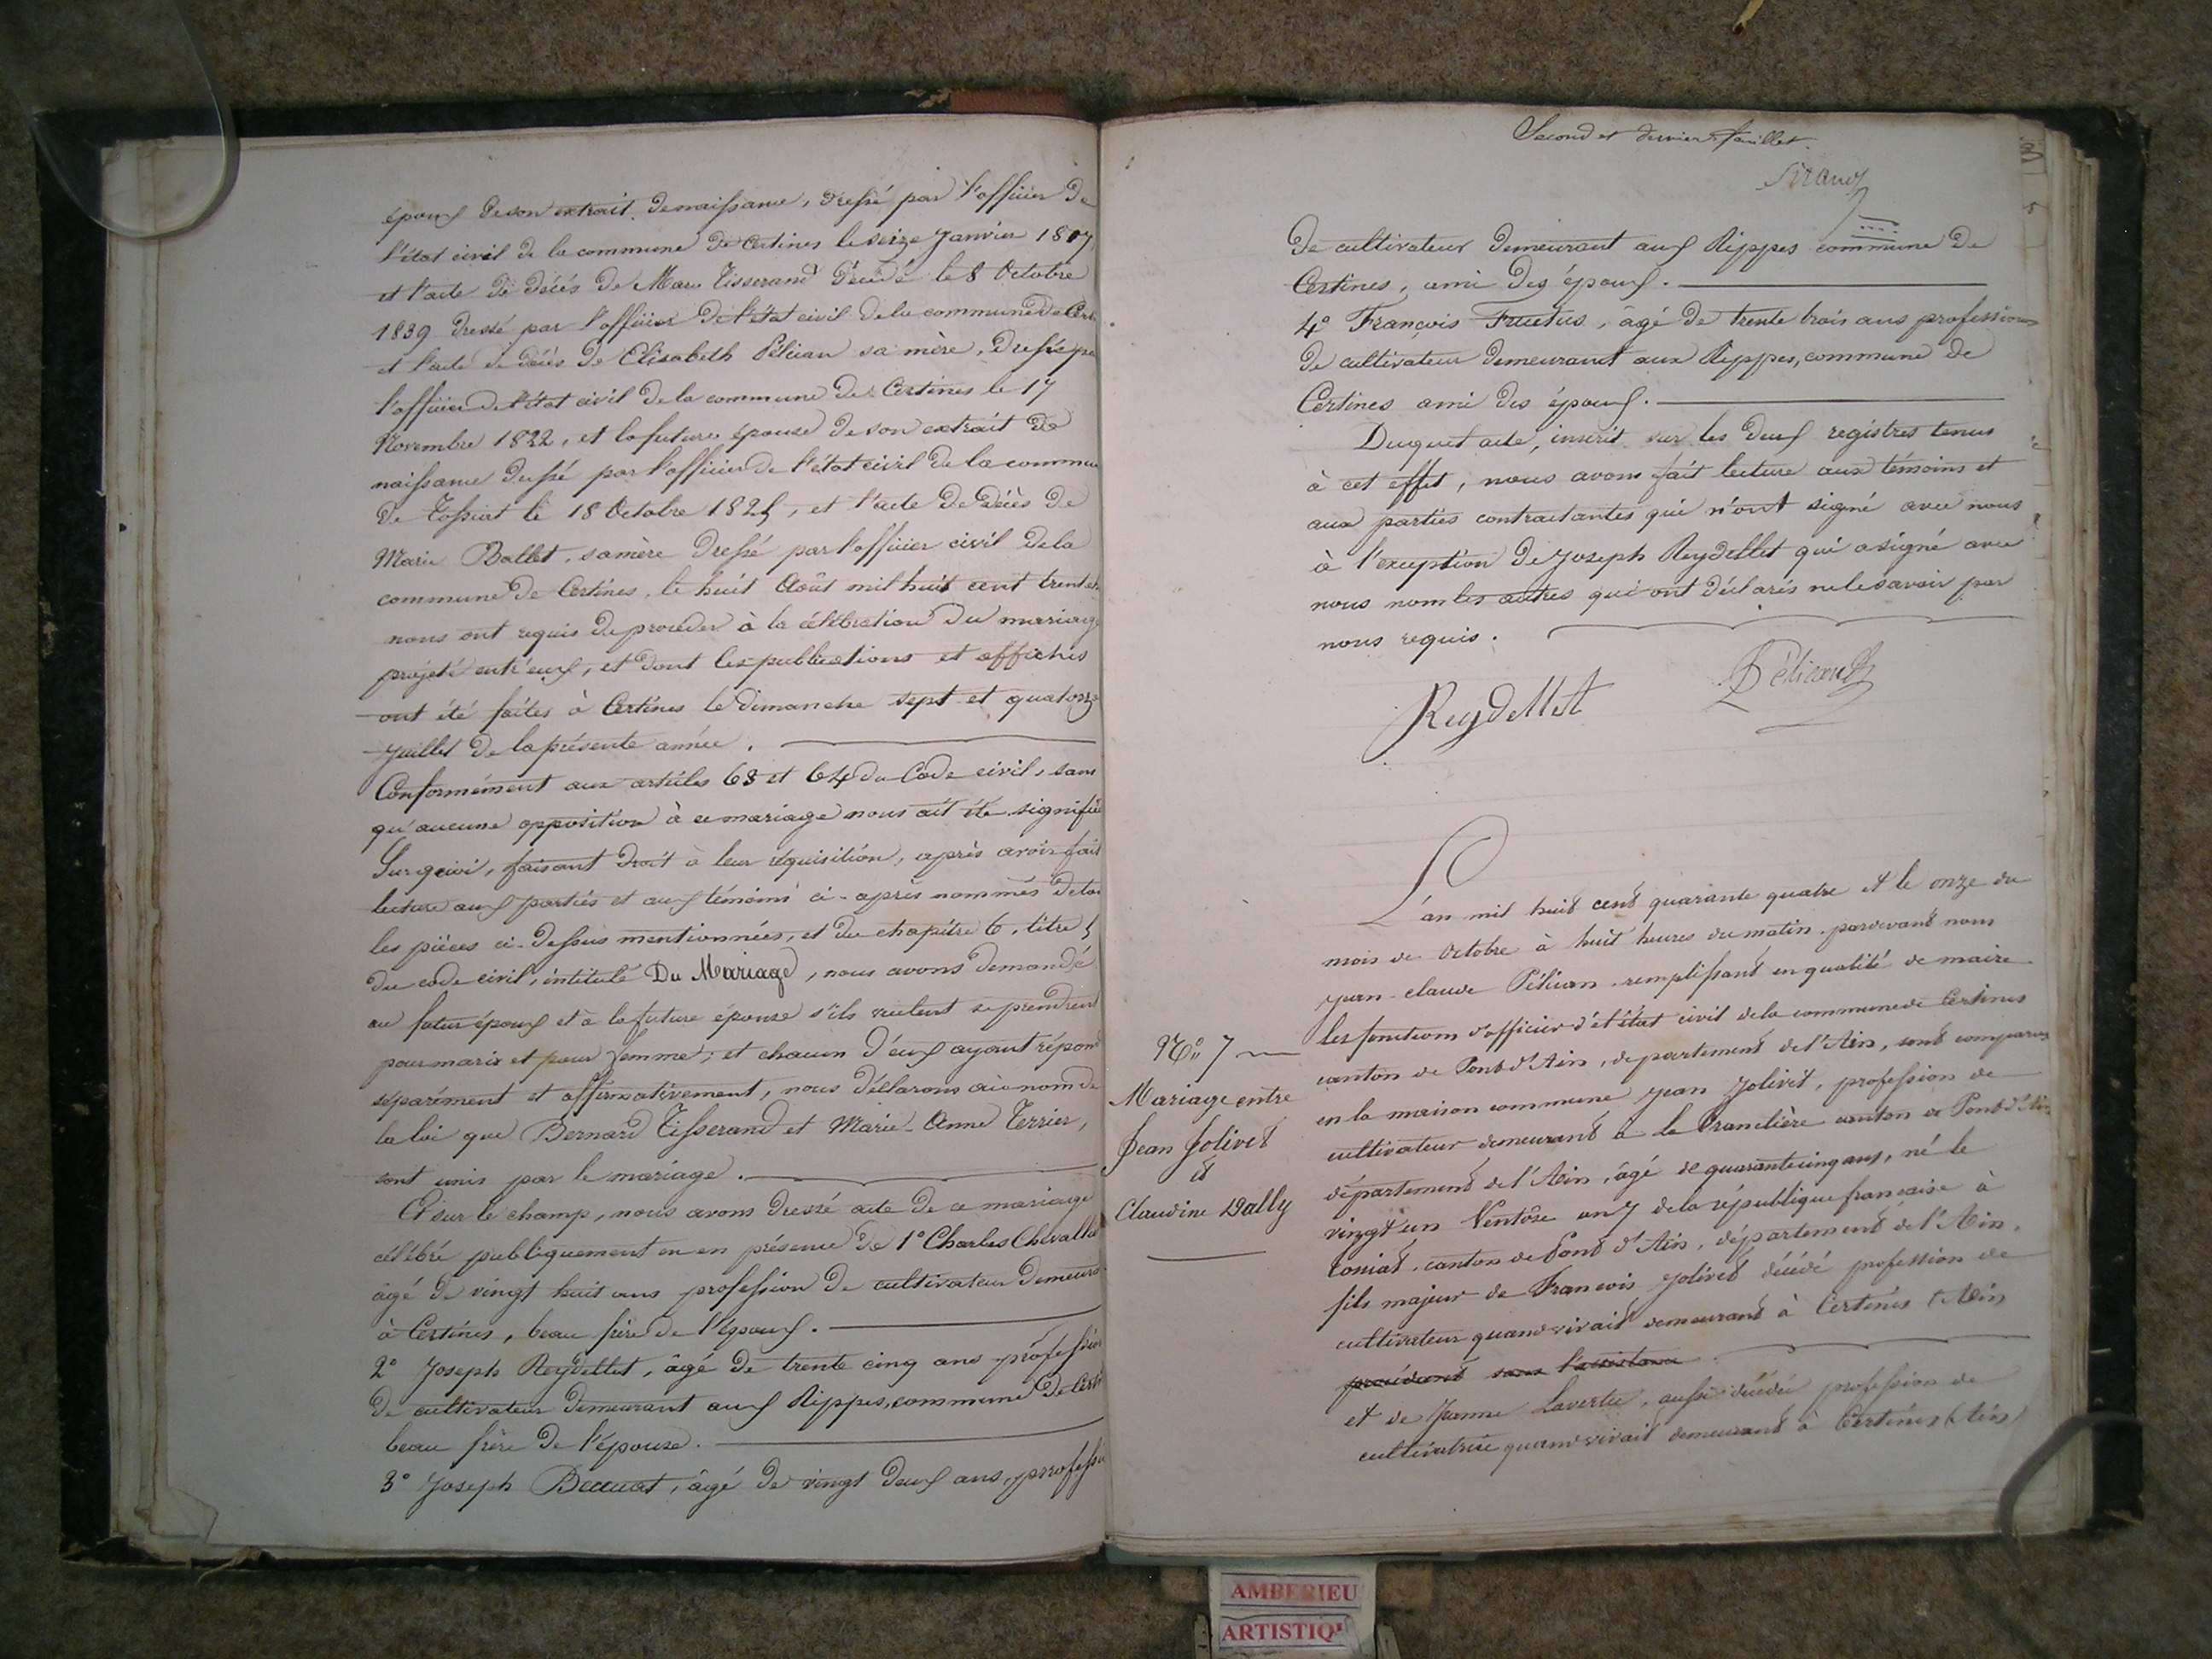 époux de son extrait de naissance, dressé par l'officier de
l'état civil de la commune de Certines le seize Janvier 1807
et l'acte de décés de Marc Tisserand décédé le 8 Octobre
1839 dressé par l'officier de l'état civil de la commune de Certi
et l'acte de décès de Elisabeth Pélican sa mère, dressé pa
l'officier de l'état civil de la commune de Certines le 17
Novembre 1822, et la future épouse de son extrait de
naissance dressé par l'officier de l'état civil de la commune
de Tossiat le 18 Octobre 1825, et l'acte de décès de
Marie Ballet, sa mère dressé par l'officier civil de la
commune de Certines, le huit Août mil huit cent trente
nous ont requis de procéder à la célébration du mariage
projeté entr'eux, et dont les publications et affiches
ont été faites à Certines le dimanche sept et quatorze
Juillet de la présente année.
Conformément aux articles 63 et 64 du Code civil, sans
qu'aucune opposition à ce mariage nous ait été signifiée
Sur quoi, faisant droit à leur réquisition, après avoir fait
lecture aux parties et aux témoins ci-après nommés de toutes
les pièces ci-dessus mentionnées, et du chapitre 6, titre 5
du code civil, intitulé Du Mariage, nous avons demandé
au futur époux et à la future épouse s'ils veulent se prendre
pour mari et pour femme; et chacun d'eux ayant répondu
séparément et affirmativement, nous déclarons au nom de
la loi que Bernard Tisserand et Marie-Anne Terrier,
sont unis par le mariage.
Et sur le champ, nous avons dressé acte de ce mariage
célébré publiquement en présence de 1° Charles Chevallier
âgé de vingt huit ans profession de cultivateur demeurant
à Certines, beau frère de l'époux.
2° Joseph Reydellet, âgé de trente cinq ans profession
de cultivateur demeurant aux Rippes, commune de Certi
beau frère de l'épouse.
3° Joseph âgé de vingt deux ans, profession
Second et dernier feuillet.
De cultivateur demeurant aux Rippes commune de
Certines, ami des époux.
4° François Fructus, âgé de trente trois ans profession
de cultivateur demeurant aux Rippes, commune de
Certines ami des époux.
Duquel acte, inscrit sur les deux registres tenus
à cet effet, nous avons fait lecture aux témoins et
aux parties contractantes qui n'ont signé avec nous
à l'exception de Joseph Reydellet qui a signé avec
nous non les autres qui ont déclarés ne le savoir par
nous requis.
Reydellet Pélican
N° 7
Mariage entre
Jean Jolivet
et
Claudine Dally
L'an mil huit cent quarante quatre et le onze du
mois de Octobre à huit heures du matin. pardevant nous
Jean-claude Pélican remplissant en qualité de maire
les fonctions d'officier d'el'état civil de la commune de Certines
canton de Pont d'Ain, département de l'Ain, sont comparus
en la maison commune Jean Jolivet, profession de
cultivateur demeurant à la Tranclière canton de Pont d'Ain
département de l'Ain, âgé de quarante cinq ans, né le
vingt un Ventôse an 7 de la république française à
Tossiat, canton de Pont d'Ain, département de l'Ain,
fils majeur de François Jolivet décédé profession de
cultivateur quand vivait demeurant à Certines (Ain)
procédant sans l'assistance
et de Jeanne Lavertu, aussi décédée profession de
cultivatrice quand vivait demeurant à Certines (Ain)
AMBERIEU
ARTISTIQ